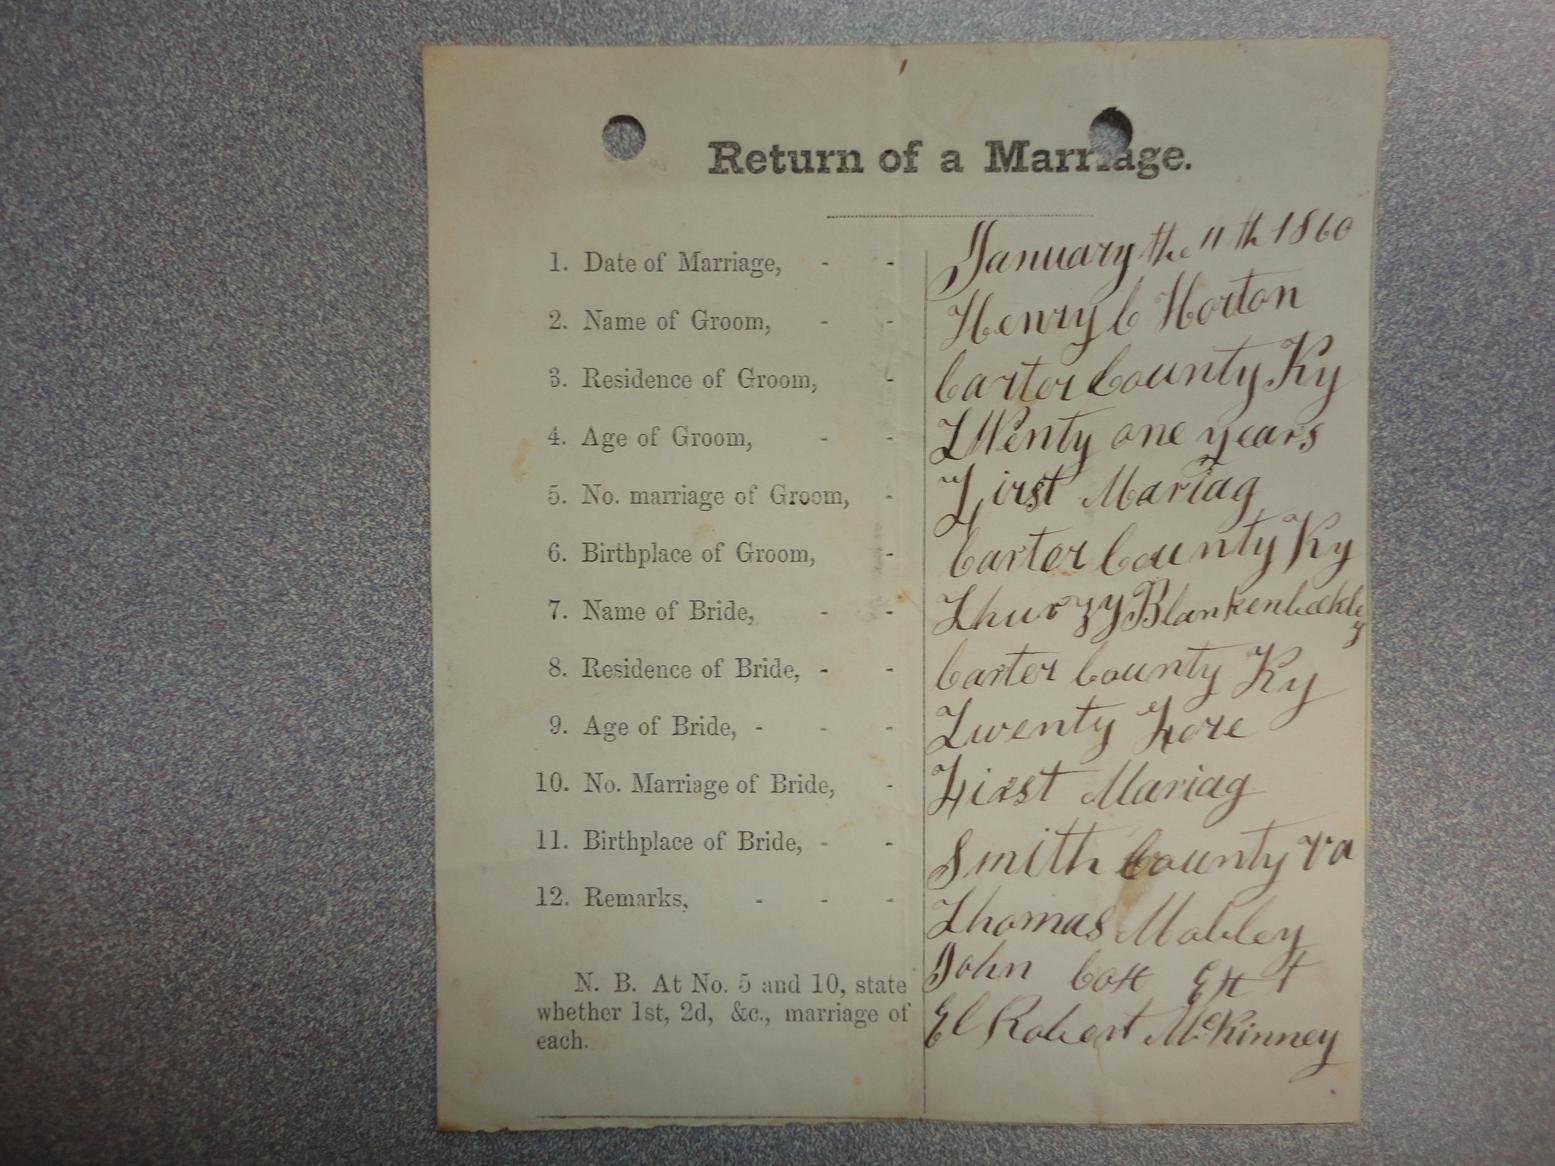 Return of a Marriage.
1. Date of Marriage, - - January the 11th 1860
2. Name of Groom, - - Henry C Horton
3. Residence of Groom, - Carter County Ky
4. Age of Groom, - - Twenty one years
5. No. marriage of Groom, - First Mariag
6. Birthplace of Groom, - Carter County Ky
7. Name of Bride, - - Thurzy Blankenbeckley
8. Residence of Bride, - - Carter County Ky
9. Age of Bride, - - - Twenty Fore
10. No. Marriage of Bride, - First Mariag
11. Birthplace of Bride, - - Smith County Va
12. Remarks, - - - Thomas Mobley
John
N. B. At No. 5 and 10, state
whether 1st, 2d, &c., marriage of
each.
El Robert McKinney